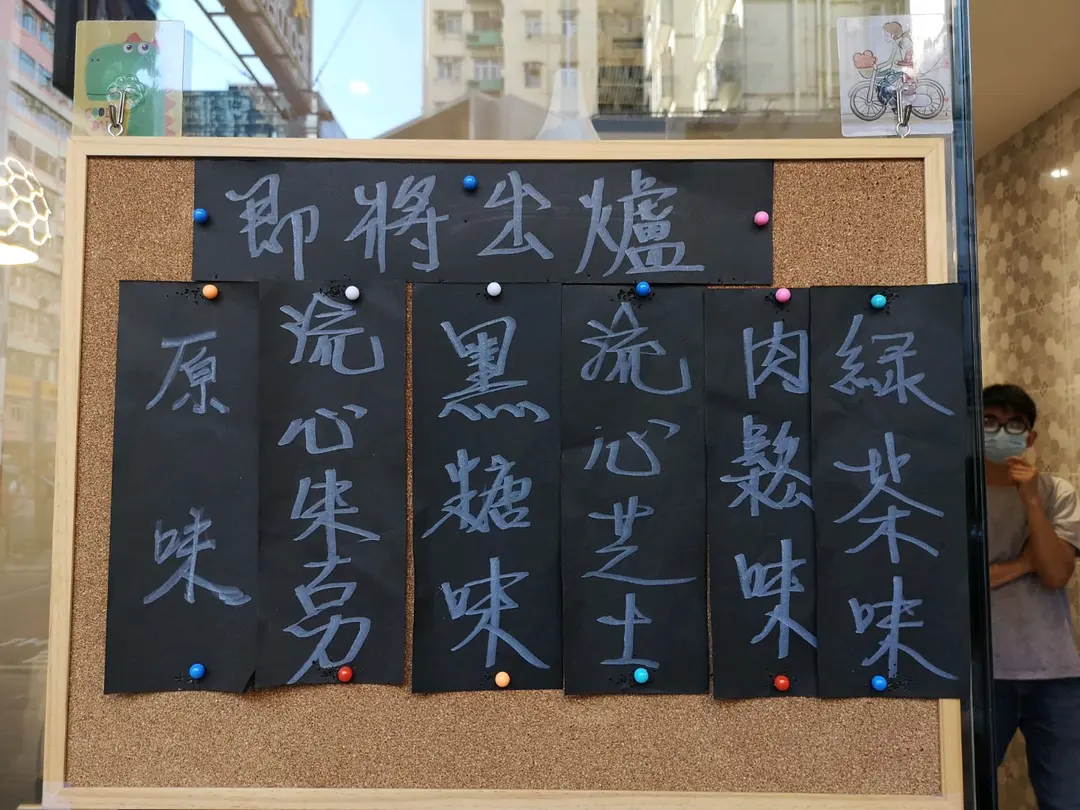 即將出爐
原味
流心朱古力
黑糖味
流心芝士
肉鬆味
綠茶味